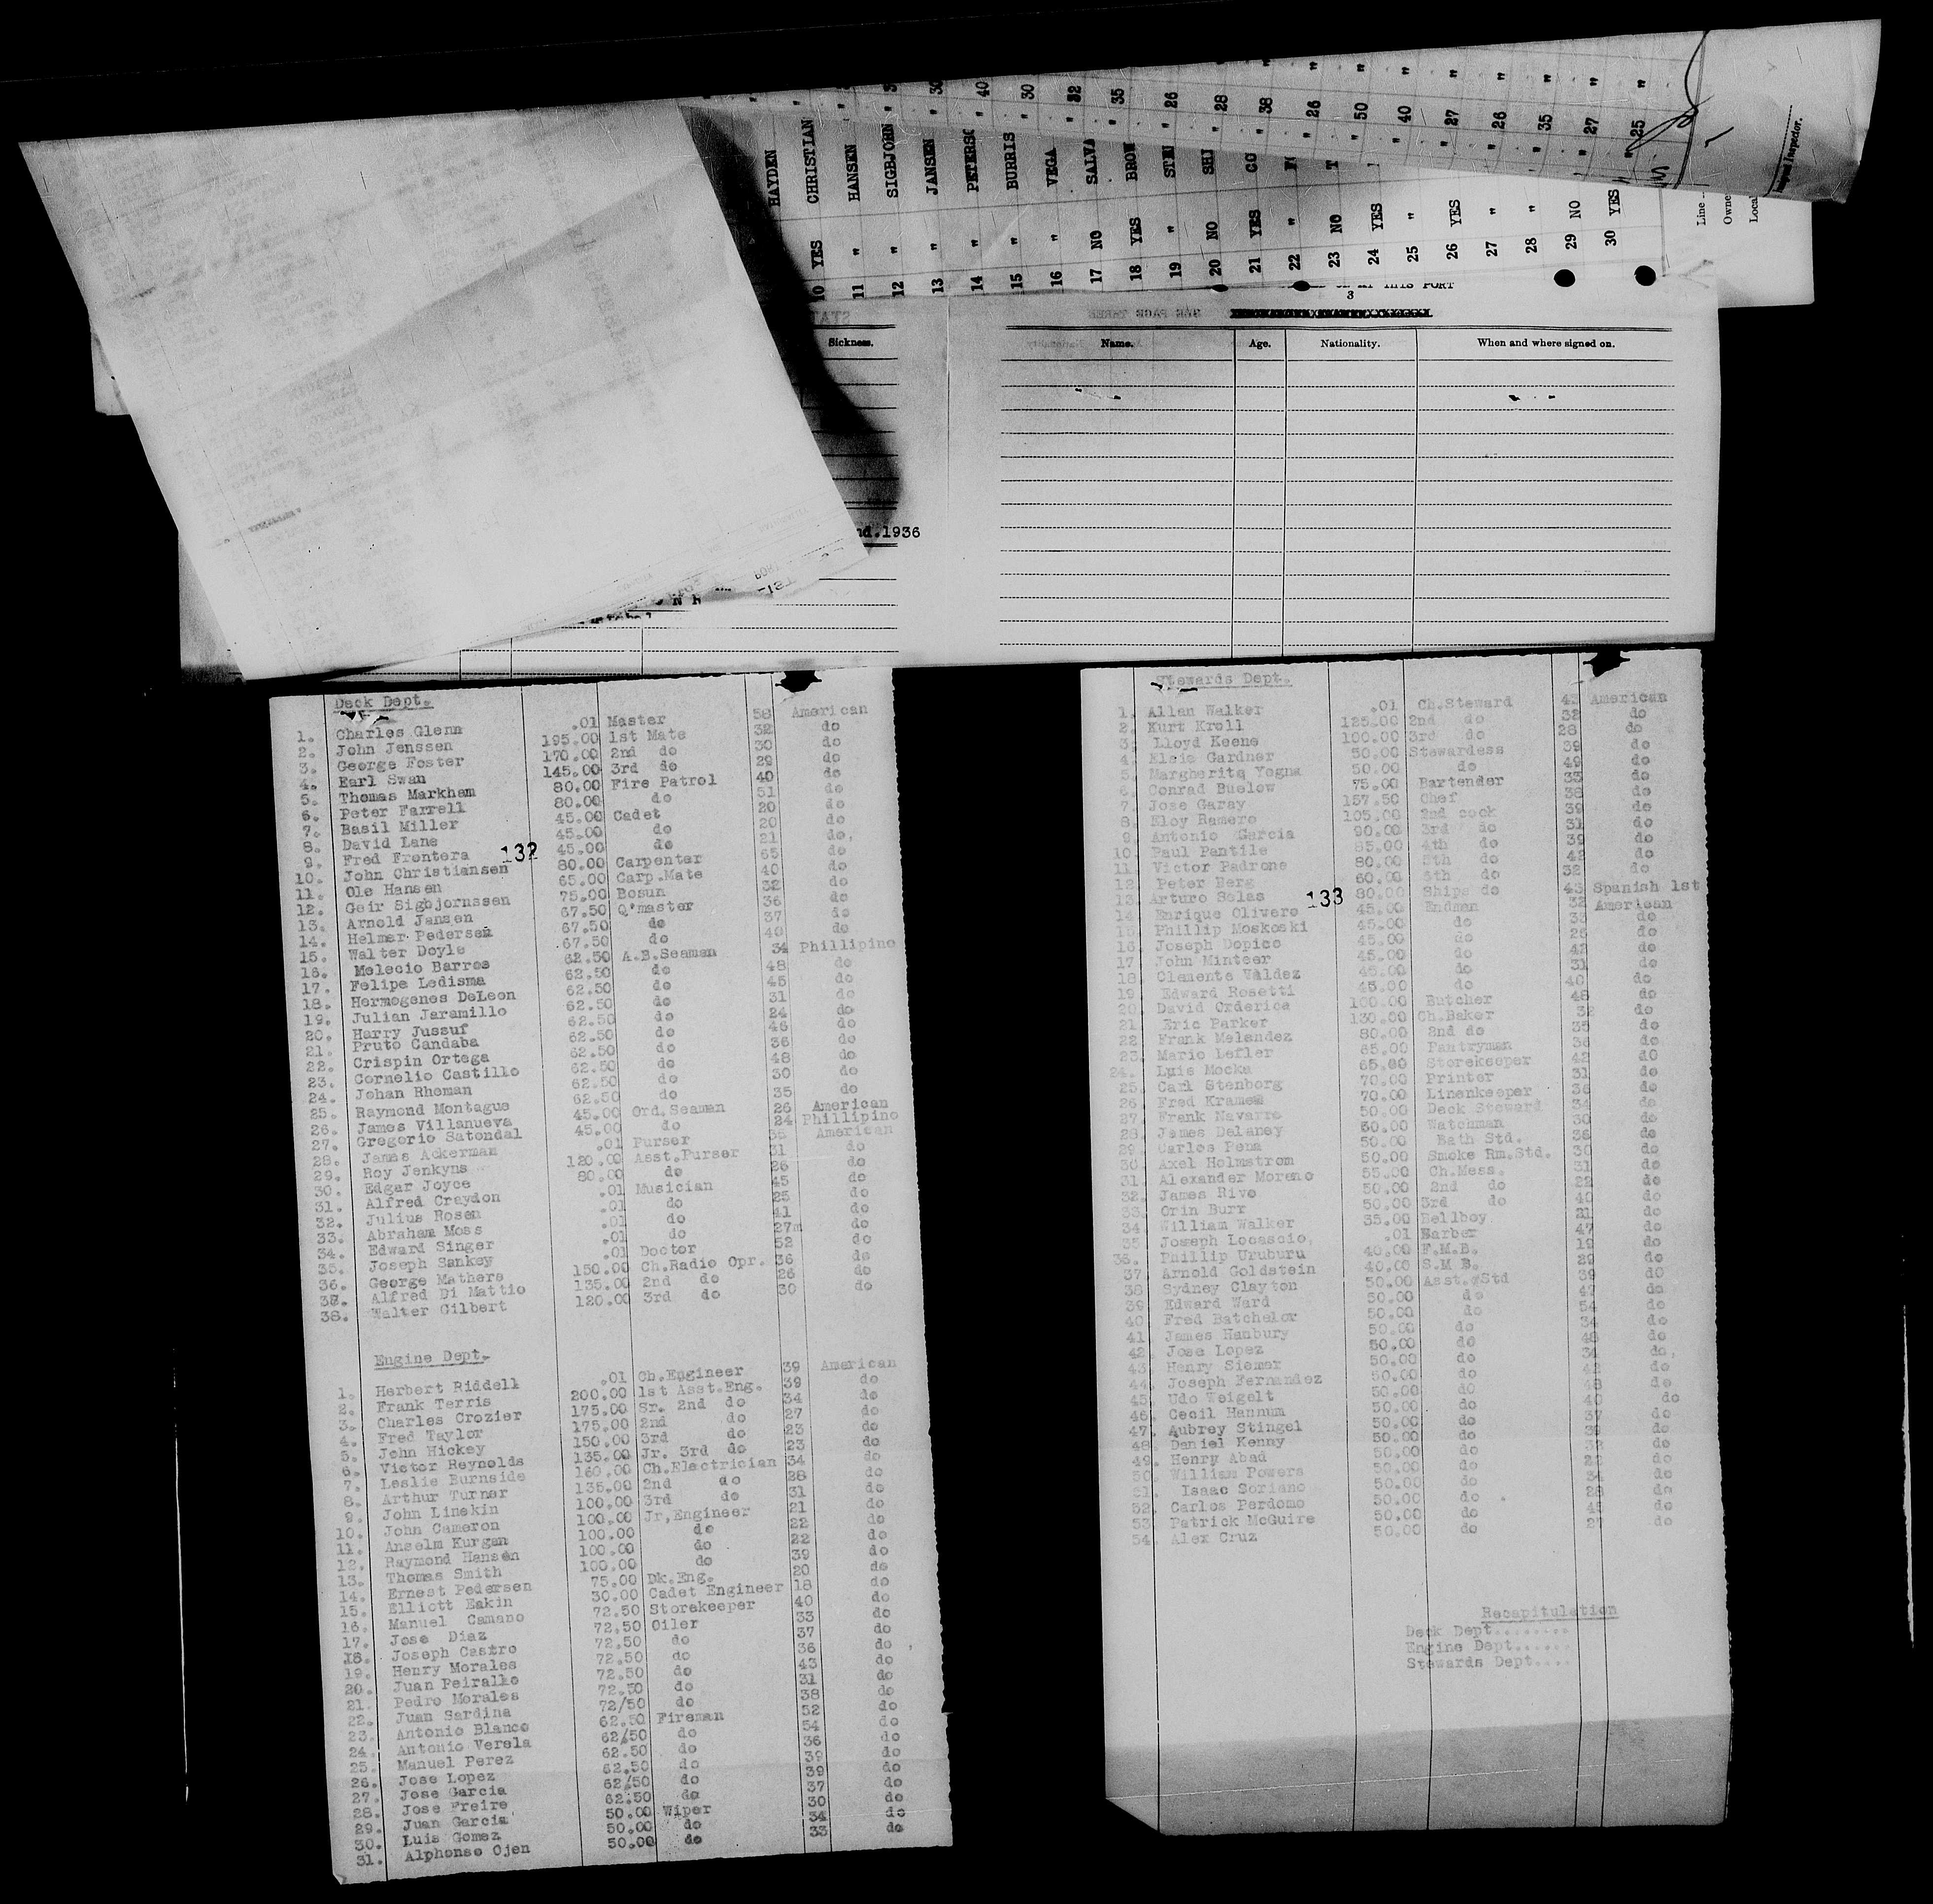 HAYDEN
10 YES CHRISTIAN " 30
11 " HANSEN "
12 " SIGBJORN "
13 " JANSEN " 30
14 " PETERSO " 40
15 " BURRIS " 30
16 " VEGA " 32
17 NO SALVA " 35
18 YES BROW " 26
19 " " 28
20 NO " 38
21 YES " 26
22 " " 50
23 NO " 40
24 YES " 27
25 " " 26
26 YES " 35
27 " " 27
28 " " 25
29 NO
30 YES
Inspector.
Line
Owne
Local
THIS PORT
3
Sickness.
Name. Age. Nationality. When and where signed on.
nd.1936
Deck Dept.
1. Charles Glenn .01 Master 58 American
2. John Jenssen 195.00 1st Mate 32 do
3. George Foster 170.00 2nd do 30 do
4. Earl Swan 145.00 3rd do 29 do
5. Thomas Markham 80.00 Fire Patrol 40 do
6. Peter Farrell 80.00 do 51 do
7. Basil Miller 45.00 Cadet 20 do
8. David Lane 45.00 do 20 do
9. Fred Frontera 45.00 do 21 do.
132
10. John Christiansen 80.00 Carpenter 65 do
11. Ole Hansen 65.00 Carp.Mate 40 do
12. Geir Sigbjornssen 75.00 Bosun 32 do
13. Arnold Jansen 67.50 Q'master 36 do
14. Helmer Pedersen 67.50 do 37 do
15. Walter Doyle 67.50 do 40 do
16. Melecio Barros 62.50 A.B.Seaman 34 Phillipino
17. Felipe Ledisma 62.50 do 48 do
18. Hermogenes DeLeon 62.50 do 45 do
19. Julian Jaramillo 62.50 do 31 do
20. Harry Jussuf 62.50 do 24 do
21. Pruto Candaba 62.50 do 46 do
22. Crispin Ortega 62.50 do 36 do
23. Cornelio Castillo 62.50 do 48 do
24. Johan Rheman 62.50 do 30 do
25. Raymond Montague 62.50 do 35 do
26. James Villanueva 45.00 Ord.Seaman 26 American
27. Gregorio Satondal 45.00 do 24 Phillipino
28. James Ackerman .01 Purser 36 American
29. Roy Jenkyns 120.00 Asst.Purser 31 do
30. Edgar Joyce 80.00 do 26 do
31. Alfred Croydon .01 Musician 45 do
32. Julius Rosen .01 do 25 do
33. Abraham Moss .01 do 41 do
34. Edward Singer .01 do 27m do
35. Joseph Sankey .01 Doctor 52 do
36. George Mathers 150.00 Ch.Radio Opr. 36 do
37. Alfred Di Mattio 135.00 2nd do 26 do
38. Walter Gilbert 120.00 3rd do 30 do
Engine Dept.
1. Herbert Riddell .01 Ch.Engineer 39 American
2. Frank Terris 200.00 1st Asst.Eng. 39 do
3. Charles Crozier 175.00 Sr. 2nd do 34 do
4. Fred Taylor 175.00 2nd do 27 do
5. John Hickey 150.00 3rd do 23 do
6. Victor Reynolds 135.00 Jr. 3rd do 23 do
7. Leslie Burnside 160.00 Ch.Electrician 34 do
8. Arthur Turner 135.00 2nd do 28 do
9. John Linekin 100.00 3rd do 31 do
10. John Cameron 100.00 Jr,Engineer 21 do
11. Anselm Kurgan 100.00 do 22 do
12. Raymond Hansen 100.00 do 22 do
13. Thomas Smith 100.00 do 39 do
14. Ernest Pedersen 75.00 Dk.Eng. 20 do
15. Elliott Eakin 30.00 Cadet Engineer 18 do
16. Manuel Camano 72.50 Storekeeper 40 do
17. Jose Diaz 72.50 Oiler 33 do
18. Joseph Castro 72.50 do 37 do
19. Henry Morales 72.50 do 36 do
20. Juan Peirallo 72.50 do 43 do
21. Pedro Morales 72.50 do 31 do
22. Juan Sardina 72/50 do 38 do
23. Antonio Blanco 62.50 Fireman 52 do
24. Antonio Verela 62/50 do 54 do
25. Manuel Perez 62.50 do 36 do
26. Jose Lopez 62.50 do 39 do
27. Jose Garcia 62/50 do 39 do
28. Jose Freire 62.50 do 37 do
29. Juan Garcia 50.00 Wiper 30 do
30. Luis Gomez 50.00 do 34 do
31. Alphonso Ojen 50.00 do 33 do
Stewards Dept.
1. Allan Walker .01 Ch.Steward 43 American
2. Kurt Kroll 125.00 2nd do 32 do
3. Lloyd Keene 100.00 3rd do 28 do
4. Elsie Gardner 50.00 Stewardess 39 do
5. Margherita Yogna 50.00 do 49 do
6. Conrad Buelow 75.00 Bartender 33 do
7. Jose Garay 157.50 Chef 38 do
8. Eloy Ramero 105.00 2nd cook 39 do
9. Antonio Garcia 90.00 3rd do 31 do
10. Paul Pantile 85.00 4th do 39 do
11. Victor Padrone 80.00 5th do 42 do
12. Peter Berg 60.00 6th do 32 do
13. Arturo Salas 80.00 Ships do 43 Spanish 1st
133
14. Enrique Olivero 45.00 Endman 32 American
15 Phillip Moskoski 45.00 do 33 do
16. Joseph Dopico 45.00 do 25 do
17 John Minteer 45.00 do 42 do
18 Clemente Valdez 45.00 do 31 do
19 Edward Rosetti 45.00 do 40 do
20 David Orderica 100.00 Butcher 48 do
21 Eric Parker 130.00 Ch.Baker 32 do
22 Frank Melendez 80.00 2nd do 35 do
23. Mario Lefler 65.00 Pantryman 36 do
24. Luis Mocka 65.00 Storekeeper 42 do
25. Carl Stenborg 70.00 Printer 31 do
26 Fred Kramer 70.00 Linenkeeper 36 do
27. Frank Navarro 50.00 Deck Steward 34 do
28. James Delaney 60.00 Watchman 30 do
29. Carlos Pena 50.00 Bath Std. 36 do
30 Axel Holmstrom 50.00 Smoke Rm.Std. 30 do
31. Alexander Moreno 55.00 Ch.Mess. 31 do
32. James Rivo 50.00 2nd do 22 do
33. Orin Burr 50.00 3rd do 40 do
34. William Walker 35.00 Bellboy 21 do
35 Joseph Locascio, .01 Barber 47 do
36. Phillip Uruburu 40.00 F.M.B. 19 do
37 Arnold Goldstein 40.00 S.M B. 29 do
38 Sydney Clayton 50.00 Asst.Std 39 do
39 Edward Ward 50.00 do 47 do
40 Fred Batchelor 50.00 do 54 do
41 James Hanbury 50.00 do 34 do
42. Jose Lopez 50.00 do 48 do
43 Henry Siemer 50.00 do 34 do.
44. Joseph Fernandez 50.00 do 42 do
45 Udo Weigelt 50.00 do 48 do
46. Cecil Hannum 50.00 do 40 do
47. Aubrey Stingel 50.00 do 37 do
48. Daniel Kenny 50.00 do 39 do
49. Henry Abad 50.00 do 32 do
50. William Powers 50.00 do 22 do
51. Isaac Soriano 50.00 do 34 do
52. Carlos Perdomo 50.00 do 28 do
53. Patrick McGuire 50.00 do 48 do
54. Alex Cruz 50.00 do 27 do
Recapitulation
Deck Dept........
Engine Dept......
Stewards Dept....